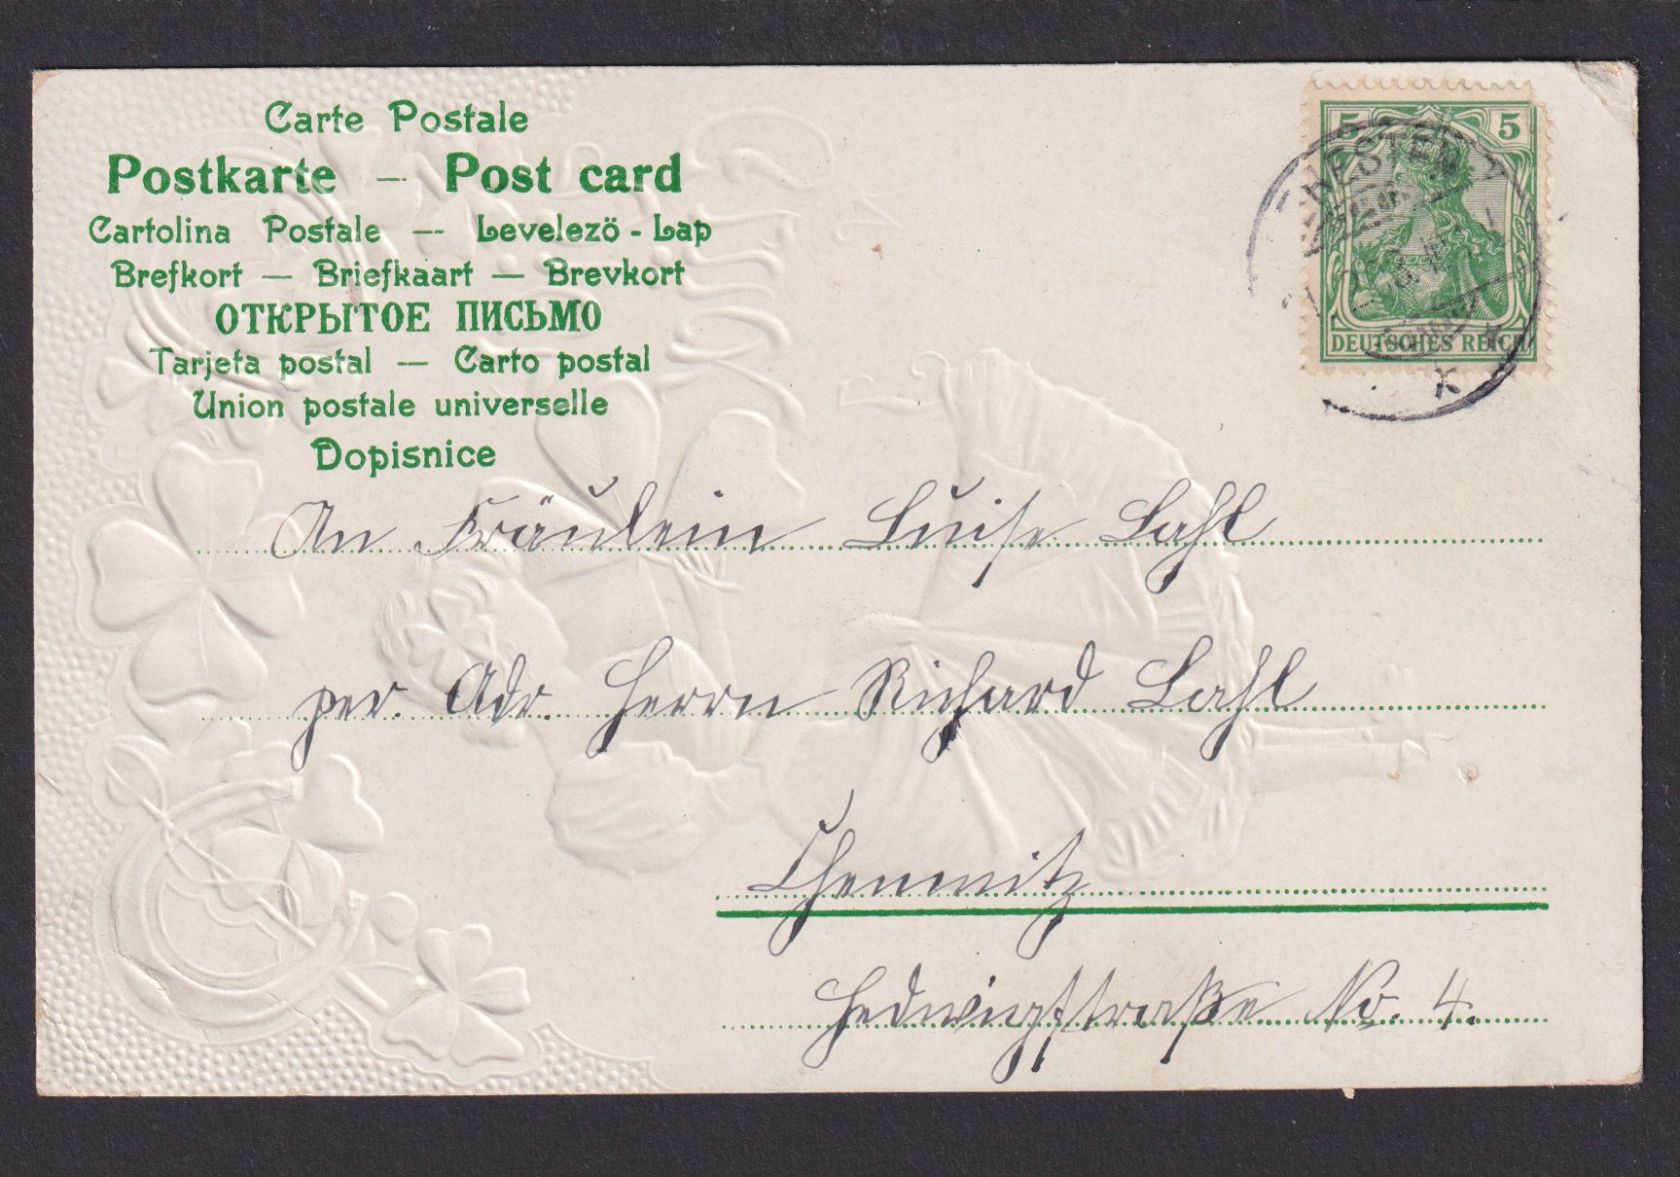 Carte Postale
Postkarte – Post card
Cartolina Postale — Levelező - Lap
Brefkort — Briefkaart — Brevkort
ОТКРЫТОЕ ПИСЬМО
Tarjeta postal — Carto postal
Union postale universelle
Dopisnice
5 5
DEUTSCHES REICH
An Fräulein Luise Lahl
per. Adr. Herrn Richard Lahl
Chemnitz
Hedwigstraße No. 4.